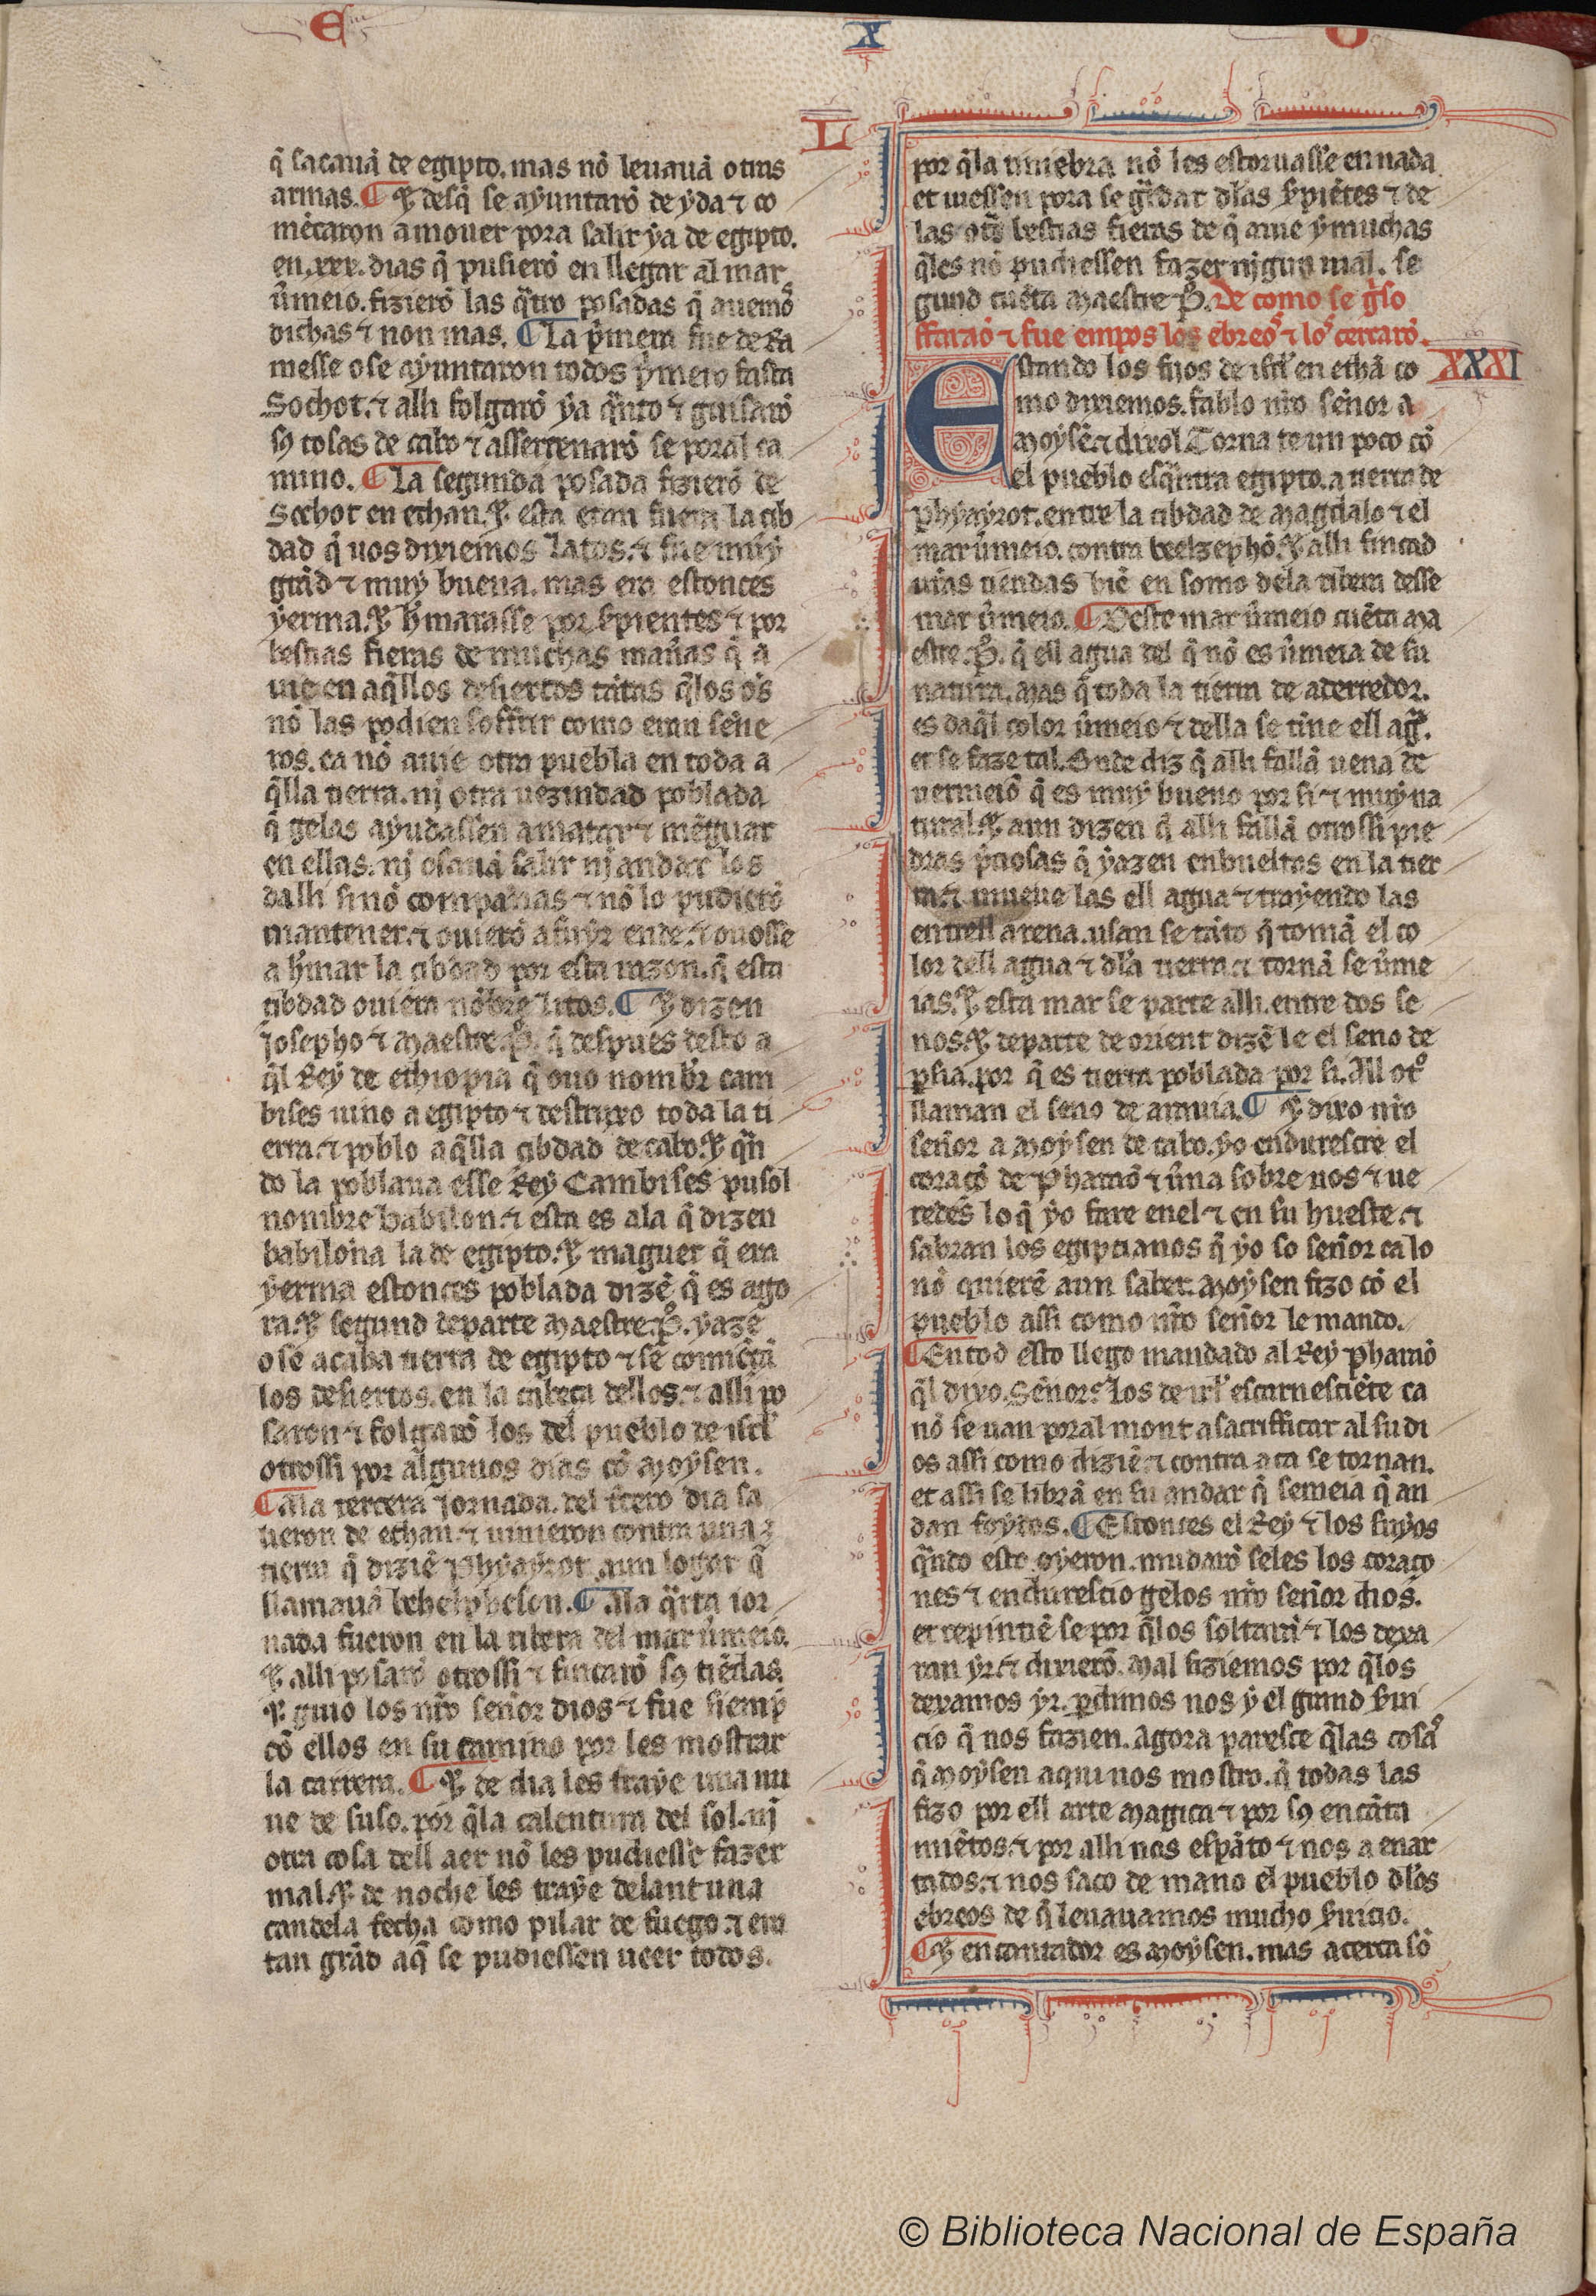 E
X
O
L
q̃ sacauã de egipto. mas nõ leuauã otras
armas. ¶ ⁊ desq̃ se ayuntarõ de yda ⁊ co
mẽçaron a mouer pora salir ya de egipto.
en .xxx. dias q̃ pusierõ en llegar al mar
ũmeio. fizierõ las q̃tro posadas q̃ auemos
dichas ⁊ non mas. ¶ La p̃mera fue de Ra
messe o se ayuntaron todos p̃mero fasta
Sochot. ⁊ alli folgarõ ya q̃nto ⁊ guisarõ
sꝯ cosas de cabo ⁊ assessenarõ se poral ca
mino. ¶ La segunda posada fizierõ de
Sochot en ethan. ⁊ esta eran fuera la cib
dad q̃ uos dixiemos Latos. ⁊ fue muy
grãd ⁊ muy buena. mas era estonces
yerma. ⁊ h̃marasse por s̃pientes ⁊ por
bestias fieras de muchas mañas q̃ a
uie en aq̃llos desiertos tãtas q̃los oẽs
nõ las podien soffrir como eran señe
ros. ca nõ auie otra puebla en toda a
q̃lla tierra. nj otra uezindad poblada
q̃ gelas ayudassen a matar ⁊ mẽguar
en ellas. nj osauã salir nj andar los
dalli sinõ compañas ⁊ nõ lo pudierõ
mantener. ⁊ ouierõ a fuyr ende. ⁊ ouosse
a h̃mar la cibdad por esta razon. q̃ esta
cibdad ouiera nõbre Litos. ¶ ⁊ dizen
Josepho ⁊ Maestre .P̃. q̃ despues desto a
q̃l Rey de ethiopia q̃ ouo nombr̃ cam
bises uino a egipto ⁊ destruxo toda la ti
erra. ⁊ poblo aq̃lla cibdad de cabo. ⁊ q̃n
do la poblaua esse Rey Cambises pusol
nombre babilon. ⁊ esta es ala q̃ dizen
babiloña la de egipto. ⁊ maguer q̃ era
yerma estonces poblada dizẽ q̃ es ago
ra. ⁊ segund departe Maestre .P̃. yaze
o se acaba tierra de egipto ⁊ se comiẽçã
los desiertos. en la cabeça dellos. ⁊ alli po
saron ⁊ folgarõ los del pueblo de isrl̃
otrossi por algunos dias cõ Moysen.
¶ Ala tercera Jornada. del t̃cero dia sa
lieron de ethan. ⁊ uinieron contra una
tierra q̃ diziẽ Phyayrot. a un logar q̃
llamauã behelphesen. ¶ Ala q̃rta ior
nada fueron en la ribera del mar ũmeio.
⁊ alli posarõ otrossi ⁊ fincarõ sꝯ tiẽdas.
⁊ guio los nr̃o señor dios ⁊ fue siemp̃
cõ ellos en su camino por les mostrar
la carrera. ¶ ⁊ de dia les traye una nu
ue de suso. por q̃la calentura del sol. nj
otra cosa dell aer nõ les pudiesse fazer
mal. ⁊ de noche les traye delant una
candela fecha como pilar de fuego. ⁊ era
tan grãd a q̃ se pudiessen ueer todos.
por q̃la tiniebra nõ les estoruasse en nada
et uiessen pora se g̃rdar dlas s̃piẽtes ⁊ de
las otr̃s bestias fieras de q̃ auie y muchas
q̃les nõ pudiessen fazer njgun mal. se
gund cuẽta Maestre P̃. De como se g̃so
ffaraõ ⁊ fue empos los ebreos ⁊ los cercarõ.
XXXI
Estando los fijos de isrl̃ en ethã co
mo dixiemos. fablo nr̃o señor a
Moysẽ. ⁊ dixol Torna te un poco cõ
el pueblo esq̃ntra egipto. a tierra de
Phyayrot. entre la cibdad de Magdalo ⁊ el
mar ũmeio. contra beelzephõ. ⁊ alli fincad
ur̃as tiendas biẽ en somo dela ribera desse
mar ũmeio. ¶ Deste mar ũmeio cuẽta Ma
estre .P̃. q̃ ell agua del q̃ nõ es ũmeia de su
natura. Mas q̃ toda la tierra de aderredor.
es daq̃l color ũmeio ⁊ della se tinne ell ag̃.
et se faze tal. Onde diz q̃ alli fallã uena de
uermeiõ q̃ es muy bueno por si ⁊ muy na
tural. ⁊ aun dizen q̃ alli fallã otrossi pie
dras p̃ciosas q̃ yazen enbueltas en la tier
ra. ⁊ mueue las ell agua ⁊ trayendo las
entrell arena. usan se tãto q̃ tomã el co
lor dell agua ⁊ dla tierra. ⁊ tornã se ũme
ias. ⁊ esta mar se parte alli. entre dos se
nos. ⁊ departe de orient dizẽ le el seno de
p̃sia. por q̃ es tierra poblada por si. All otro
llaman el seno de arauia. ¶ ⁊ dixo nr̃o
señor a Moysen de cabo. yo endurescre el
coraçõ de Pharaõ ⁊ ũna sobre uos ⁊ ue
redes lo q̃ yo fare enel ⁊ en su hueste. ⁊
sabran los egiptianos q̃ yo so señor ca lo
nõ quierẽ aun saber. Moysen fizo cõ el
pueblo assi como nr̃o señor le mando.
¶ En tod esto llego mandado al Rey pharaõ
q̃l dixo. Señor los de isrl̃ escarnesciẽte ca
nõ se uan poral mont a sacrifficar al su di
os assi como diziẽ. ⁊ contra aca se tornan.
et assi se librã en su andar q̃ semeia q̃ an
dan foydos. ¶ Estonces el Rey ⁊ los suyos
q̃ndo esto oyeron. mudarõ seles los coraço
nes ⁊ endurescio gelos nr̃o señor dios.
et repintiẽ se por q̃los soltarã ⁊ los dexa
ran yr. ⁊ dixierõ. Mal fiziemos por q̃los
dexamos yr. p̃dimos nos y el grand s̃ui
cio q̃ nos fazien. Agora paresce q̃las cosas
q̃ Moysen aqui nos mostro. q̃ todas las
fizo por ell arte Magica ⁊ por sꝯ encãta
miẽtos. ⁊ por alli nos espãto ⁊ nos a enar
tados. ⁊ nos saco de mano el pueblo dlos
ebreos de q̃ leuauamos mucho s̃uicio.
¶ ⁊ encantador es Moysen. mas acerca sõ
© Biblioteca Nacional de España